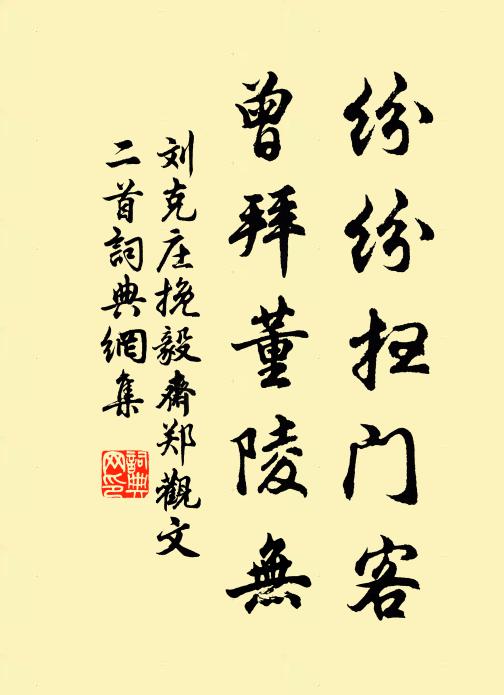 纷纷扫门客
曾拜董陵無
刘克庄挽毅斋郑觀文
二首詞典網集
詞典网印